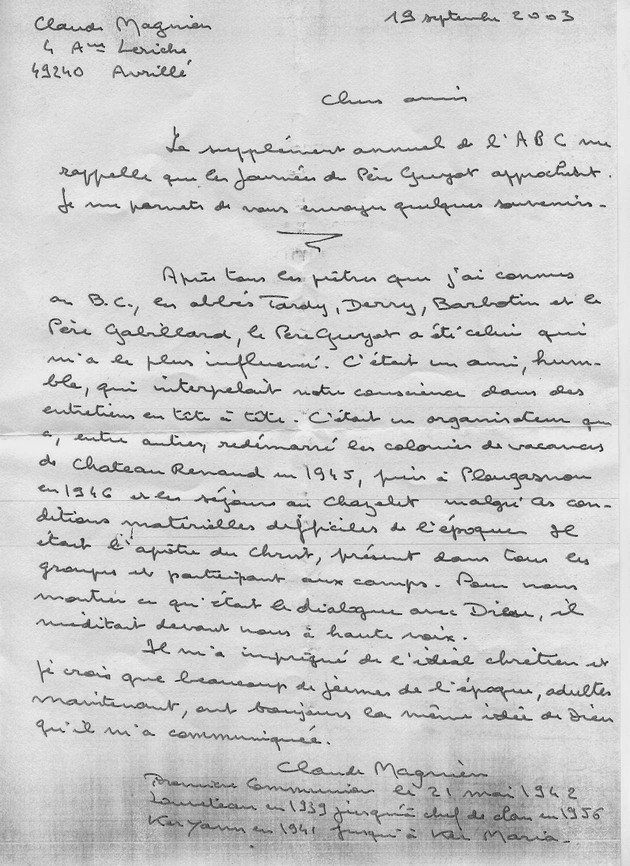 Claude Magnien
19 septembre 2003
4 Ave Leriche
49240 Avrillé
Chers amis
Le supplément annuel de l'ABC me
rappelle que les Journées du Père Guyot approchent.
Je me permets de vous envoyer quelques souvenirs.
Après tous les prêtres que j'ai connus
au B.C., les abbés Tardy, Derry, Barbotin et le
Père Gabillard, le Père Guyot a été celui qui
m'a le plus influencé. C'était un ami, hum-
ble, qui interpelait notre conscience dans des
entretiens en tête à tête. C'était un organisateur qui
a, entre autres, redémarré les colonies de vacances
de Chateau Renaud en 1945, puis à Plougasnou
en 1946 et les séjours au Chazelet malgré les con-
ditions matérielles difficiles de l'époque. Il
était l'apôtre du Christ, présent dans tous les
groupes et participant aux camps. Pour nous
montrer ce qu'était le dialogue avec Dieu, il
méditait devant nous à haute voix.
Il m'a imprégné de l'idéal chrétien et
je crois que beaucoup de jeunes de l'époque, adultes
maintenant, ont toujours la même idée de Dieu
qu'il m'a communiquée.
Claude Magnien
Première Communion le 21 mai 1942
Louveteau en 1939 jusqu'à chef de clan en 1956
Ker Yann en 1941 jusqu'à Ker Maria.